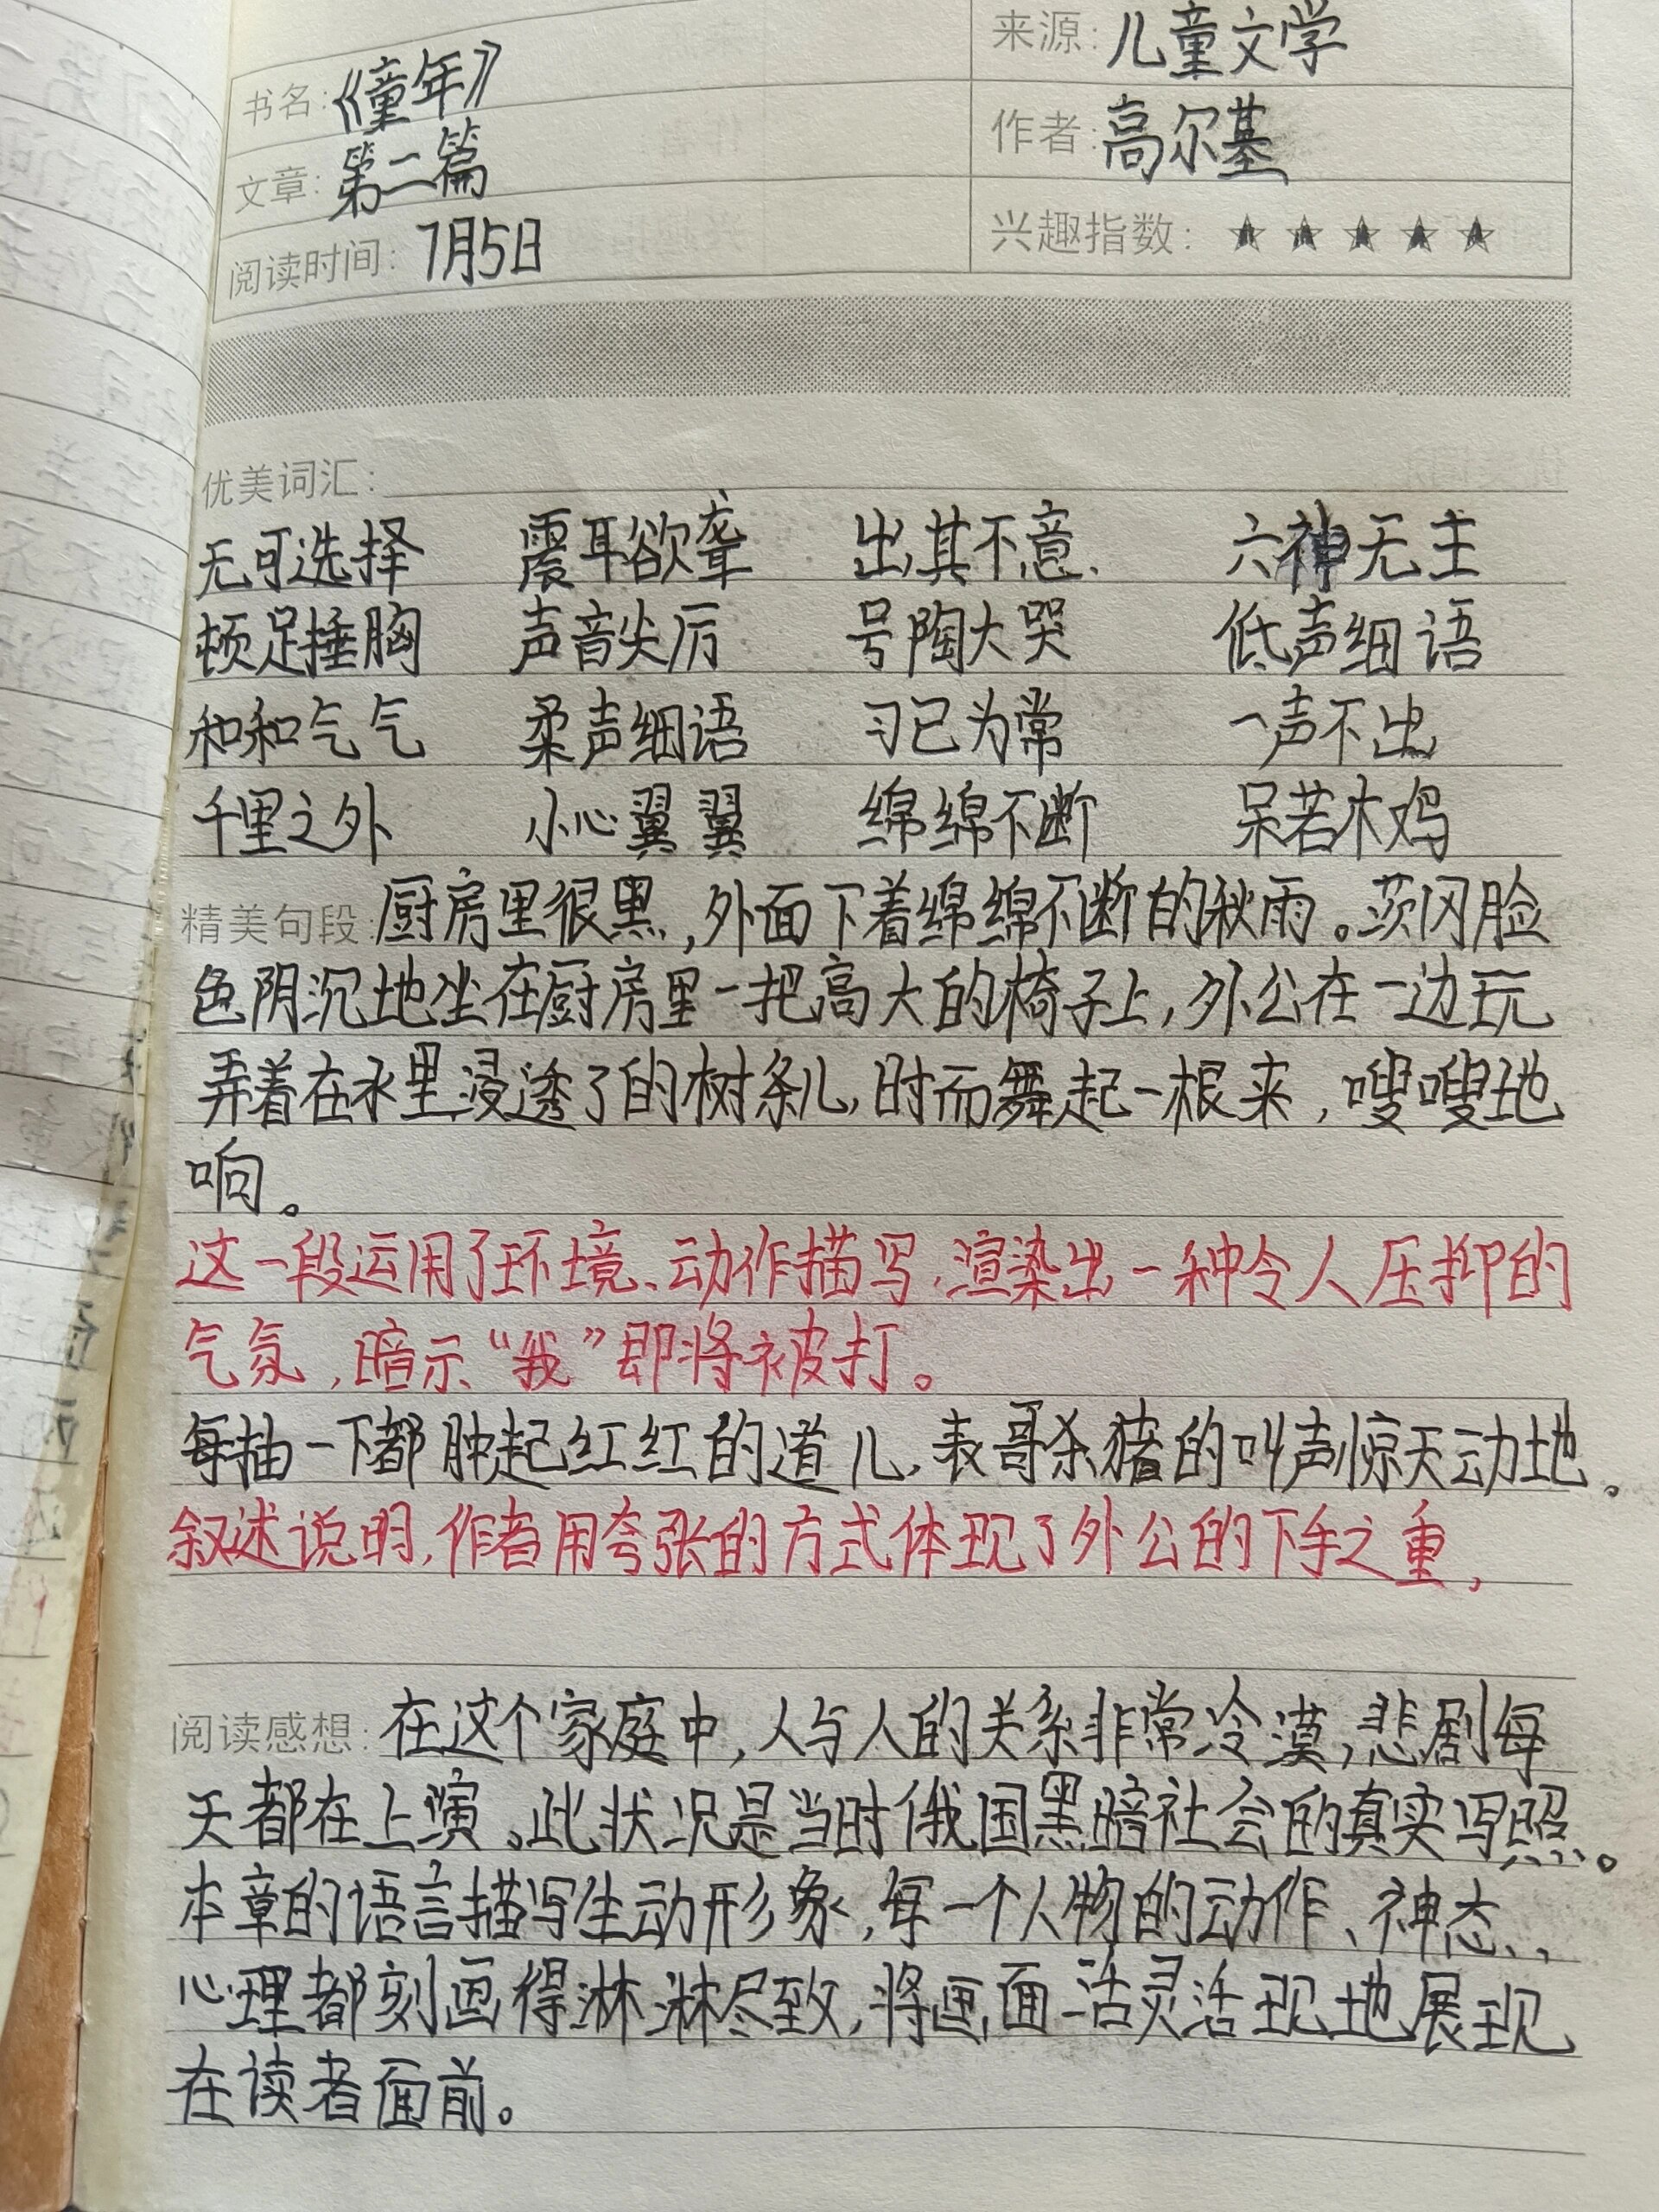 书名:《童年》
来源:儿童文学
文章:第二篇
作者:高尔基
阅读时间:7月5日
兴趣指数:★★★★★
优美词汇:
无可选择 震耳欲聋 出其不意、 六神无主
顿足捶胸 声音尖厉 号陶大哭 低声细语
和和气气 柔声细语 习已为常 一声不出
千里之外 小心翼翼 绵绵不断 呆若木鸡
精美句段:厨房里很黑,外面下着绵绵不断的秋雨。茨冈脸
色阴沉地坐在厨房里一把高大的椅子上,外公在一边玩
弄着在水里浸透了的树条儿,时而舞起一根来,嗖嗖地
响。
这一段运用了环境、动作描写,渲染出一种令人压抑的
气氛,暗示“我”即将被打。
每抽一下都肿起红红的道儿,表哥杀猪的叫声惊天动地。
叙述说明,作者用夸张的方式体现了外公的下手之重,
阅读感想:在这个家庭中,人与人的关系非常冷漠,悲剧每
天都在上演。此状况是当时俄国黑暗社会的真实写照。
本章的语言描写生动形象,每一个人物的动作、神态、,
心理都刻画得淋淋尽致,将画面活灵活现地展现
在读者面前。